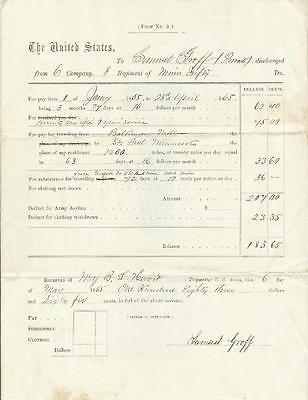 (FORM NO 5.)
The United States,
To Samuel Groff (Private), discharged
from E Company, 8 Regiment of Minn Infty Dr.
DOLLARS CENTS
For pay from 1 of Jany 1865 to 28th April 1865
being 3 months days at 16 dollars per month 62 40
For
75 00
For pay for travelling from Baltimore
to St. Paul Minnesota
place of enrolment 1260 miles, at twenty miles per day, equal
to 63 days, at 16 dollars per month 33 60
For subsistence for travelling 72 days at 50 cents per miles or day 36 —
For clothing not drawn
207 00
Deduct for Army Asylum
Deduct for clothing withdrawn 23 35
Balance 183,65
RECEIVED of Maj B. F. Paymaster U. S. Army, this 6 day
of May 1865 One Hundred Eighty Three dollars
and Sixty five cents, in full of the above account.
(SIGNED IN DUPLICATE.)
PAY
SUBSISTENCE
CLOTHING
Dollars
Samuel Groff